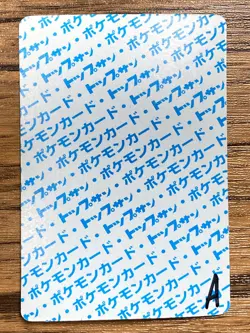 トップサン・ポケモンカード
ポケモンカード・トップサン
トップサン・ポケモンカード
ポケモンカード・トップサン・
・トップサン・ポケモンカード
ポケモンカード・トップサン
トップサン・ポケモンカード・
ポケモンカード・トップサン
トップサン・ポケモンカード
ポケモンカード
A